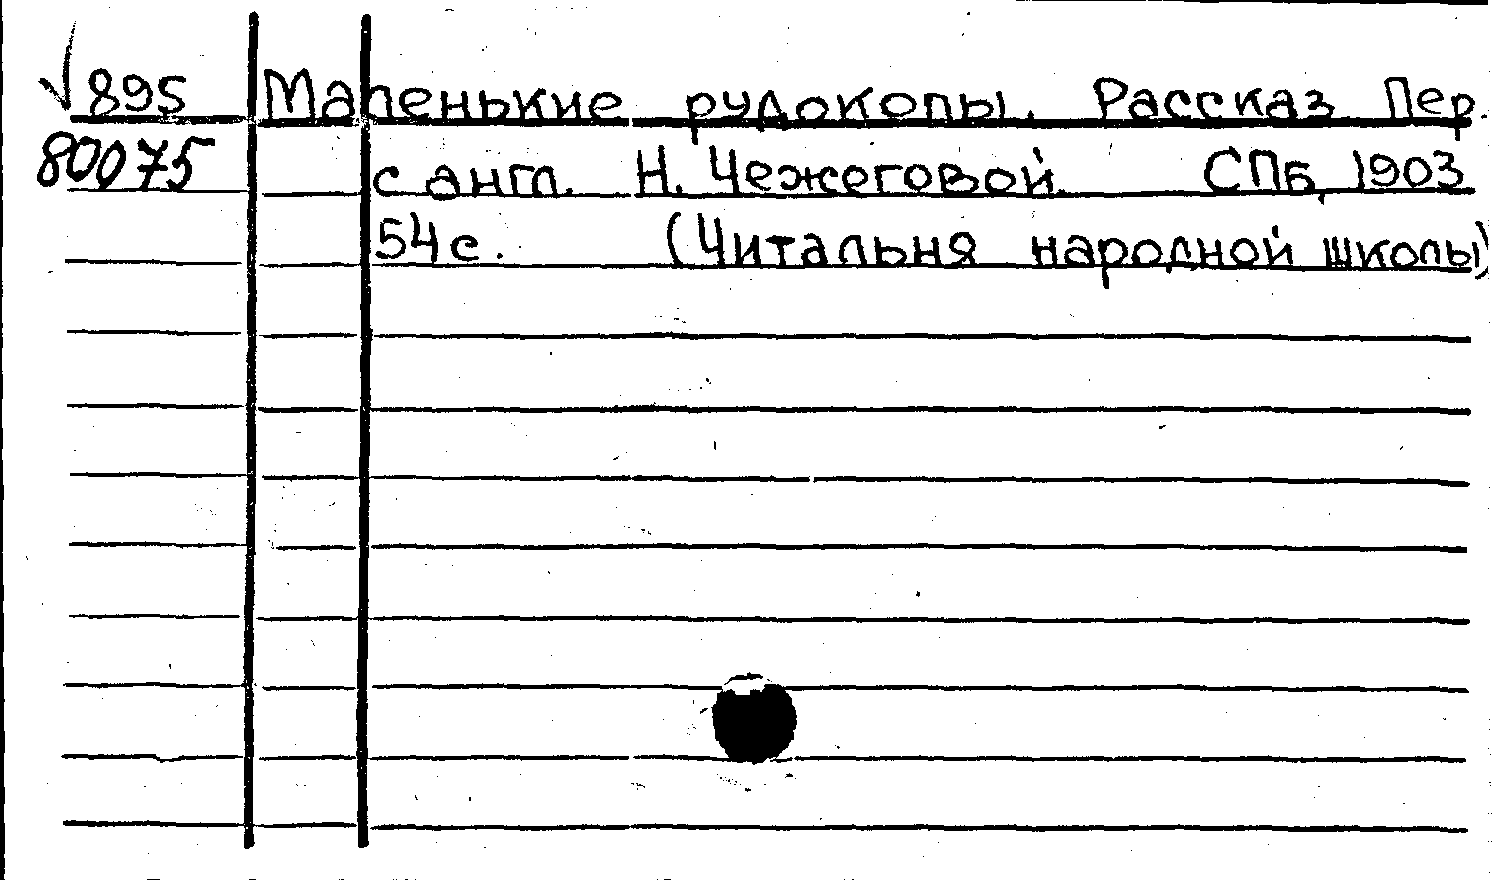 895 Маленькие рудокопы. Рассказ Пер.
80075 с англ. Н. Чежеговой. СПб, 1903
54 с. (Читальня народной школы)